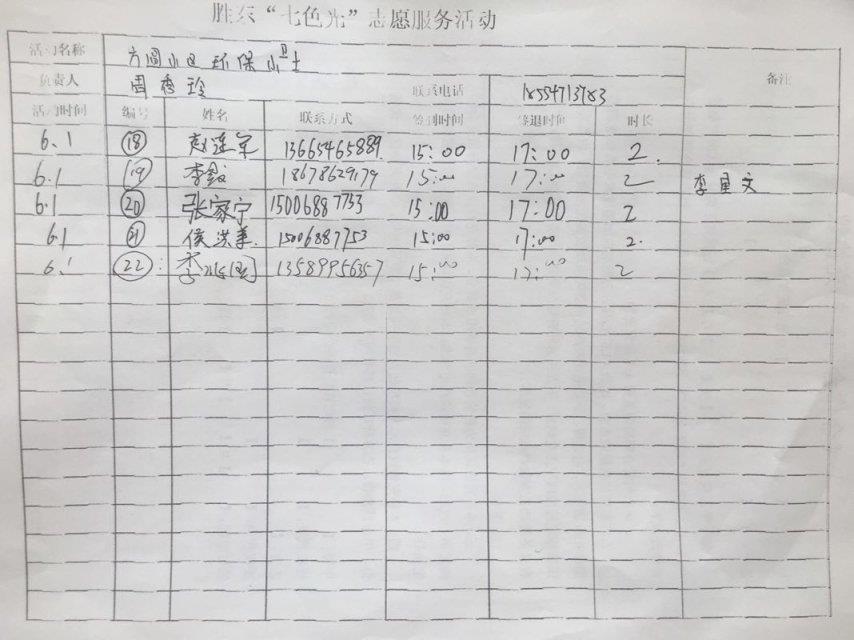 胜东“七色光”志愿服务活动
活动名称 方圆小区环保小卫士 备注
负责人 周香玲 联系电话 18554713783
活动时间 编号 姓名 联系方式 签到时间 签退时间 时长
6.1 ⑱ 赵连军 13665465889 15:00 17:00 2.
6.1 ⑲ 李毅 18678629179 15:00 17:00 2 李星文
6.1 ⑳ 张家宁 15006887753 15:00 17:00 2
6.1 ㉑ 侯洪美. 15006887753 15:00 17:00 2.
6.1 ㉒ 李 13589956357 15:00 17:00 2